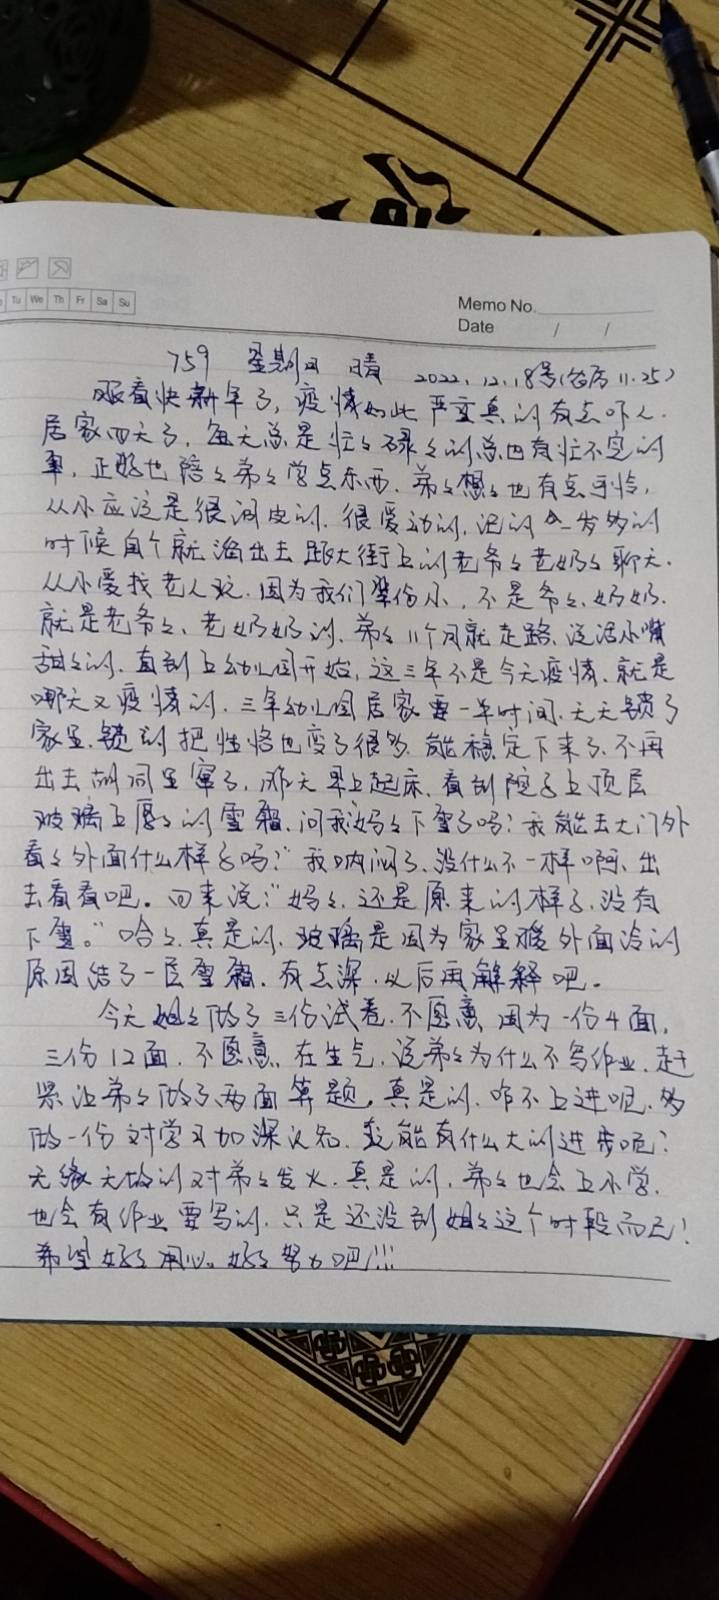 Tu We Th Fr Sa Su
Memo No.
Date / /
759 星期日 晴 2022.12.18号(农历11.25)
眼看快新年了,疫情如此严重真的有点吓人.
居家四天了,每天总是忙々碌々的总也有忙不完的
事,正好也陪々弟々学点东西.弟々想々也有点可怜,
从小应该是很调皮的.很爱动的,记的会发多的
时候自个就溜出去跟大街上的老爷々老奶々聊天.
从小爱找老人玩.因为我们辈份小,不是爷々、奶奶.
就是老爷々、老奶奶的.弟々11个月就走路,说话小嘴
甜々的.直到上幼儿园开始,这三年不是今天疫情.就是
哪天又疫情的.三年幼儿园居家要一半时间.天天锁了
家里.锁的把性格也变了很多.能稳定下来了.不再
出去胡同里窜了,昨天早上起床.看到院子上顶层
玻璃上厚々的雪霜.问我:妈々下雪了吗?我能去大门外
看々外面什么样子吗?"我呐闷了、没什么不一样啊、出
去看看吧。回来说:"妈々.还是原来的样子.没有
下雪。"哈々.真是的.玻璃是因为家里暖外面冷的
原因结了一层雪霜.有点深.以后再解释吧。
今天姐々做了三份试卷.不愿意.因为一份4面,
三份12面.不愿意.在生气.说弟々为什么不写作业.赶
紧让弟々做了两面算题.真是的.咋不上进呢.多
做一份对学习加深认知.就能有什么大的进步呢?
无缘无故的对弟々发火.真是的,弟々也会上小学.
也会有作业要写的.只是还没到姐々这个时段而已!
希望好々用心。好々努力吧!!!